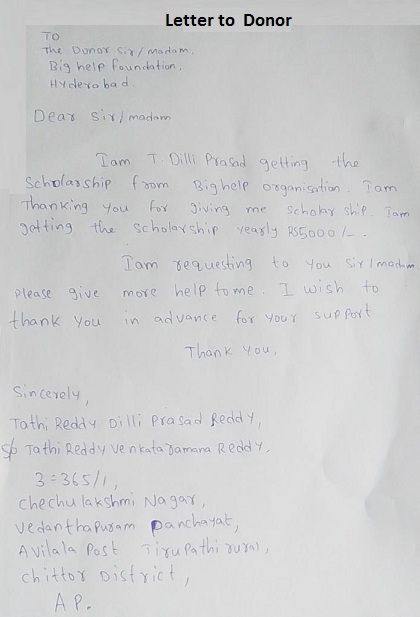 Letter to Donor
TO
The Donor Sir/madam,
Big help foundation,
Hyderabad
Dear Sir/madam
Iam T. Dilli Prasad getting the
Scholarship from Bighelp organisation. Iam
Thanking you for giving me scholar ship. Iam
getting the scholarship yearly RS5000/-.
Iam requesting to you Sir/madam
please give more help to me. I wish to
thank you in advance for your support
Thank you,
Sincerely,
Tathi Reddy Dilli Prasad Reddy,
S/o Tathi Reddy Venkata ramana Reddy,
3-365/1,
chechulakshmi Nagar,
vedanthapuram panchayat,
Avilala Post Tirupathi rural,
chittor District,
A P.